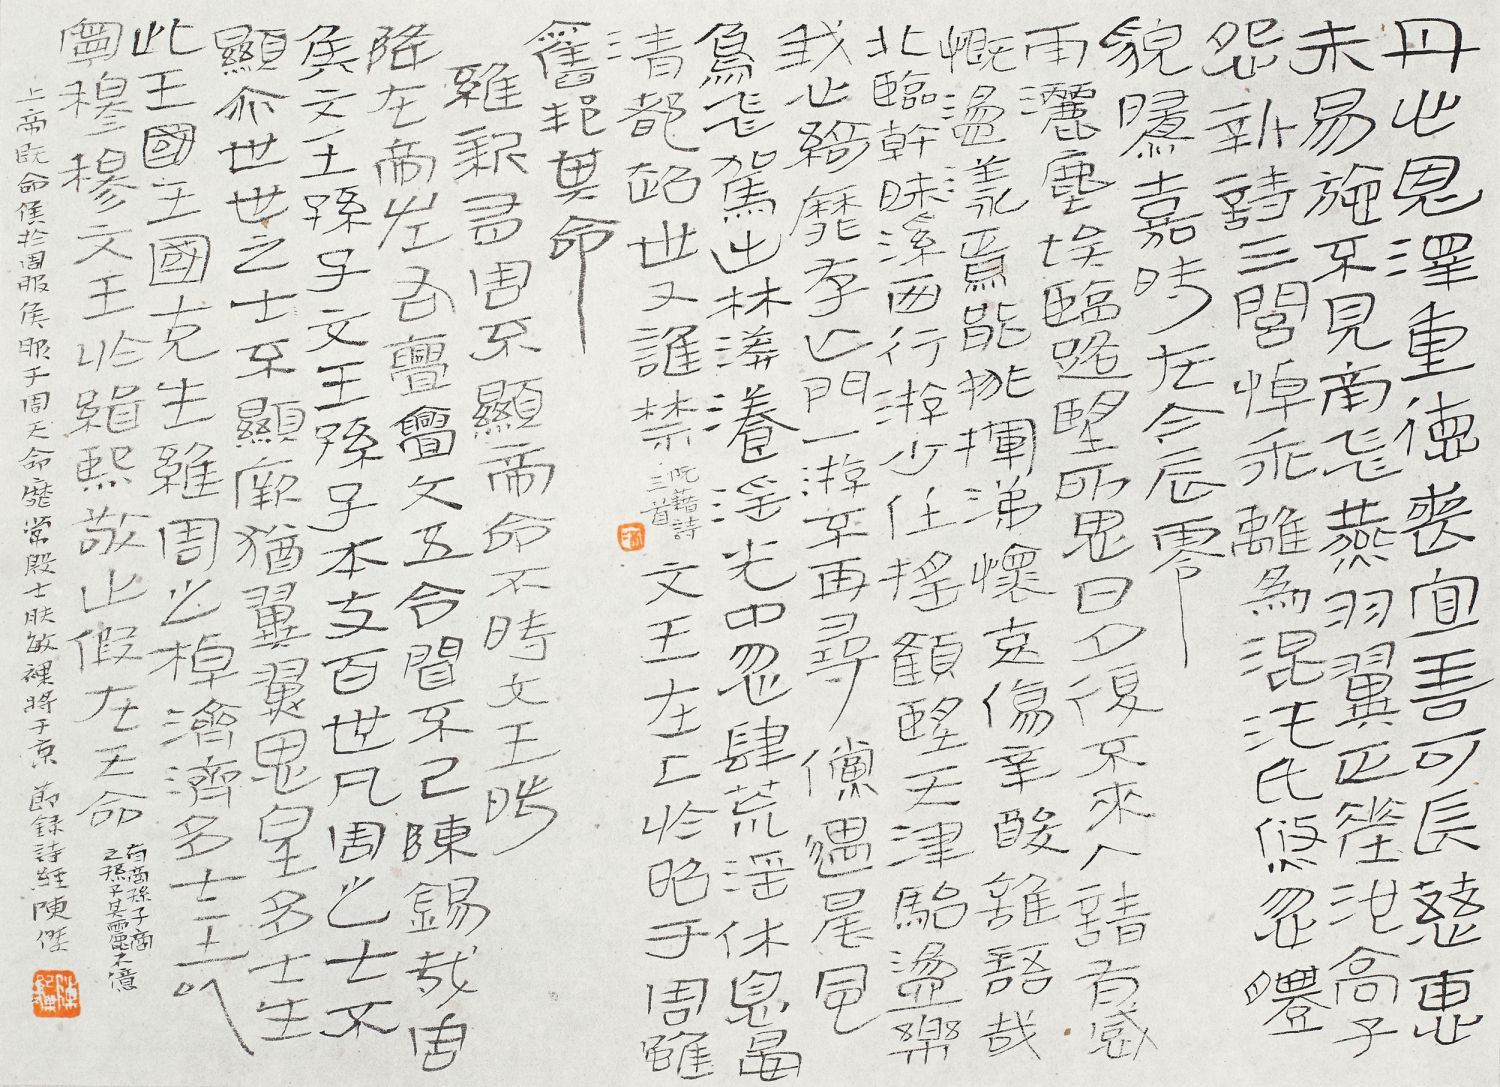 丹心恩澤重德喪宜善可長慈惠
未易施不見南飛燕羽翼正差池高子
怨新詩三閭悼乖離為混沌氏倏忽體
貌隳嘉時在今辰零
雨灑塵埃臨路望所思日夕復不來人請有感
慨盪漾焉能排揮涕懷哀傷辛酸誰語哉
北臨幹昧溪西行游少任遙顧望天津駘盪樂
我心綺靡存亡門一游不再尋儻遇晨風
鳥飛駕出林漭瀁淫光中忽肆荒淫休息晏
清都超世又誰禁
阮籍詩
三首
文王在上於昭于周雖
舊邦其命
維新有周不顯帝命不時文王陟
降在帝左右亹亹文王令聞不已陳錫哉周
侯文王孫子文王孫子本支百世凡周之士不
顯亦世世之士不顯厥猶翼翼思皇多士生
此王國王國克生維周之楨濟濟多士文王以
寧穆穆文王於緝熙敬止假在天命
有商孫子商
之孫子其麗不億
上帝既命侯於周服侯服于周天命靡常殷士膚敏裸將于京 節錄詩經陳傑